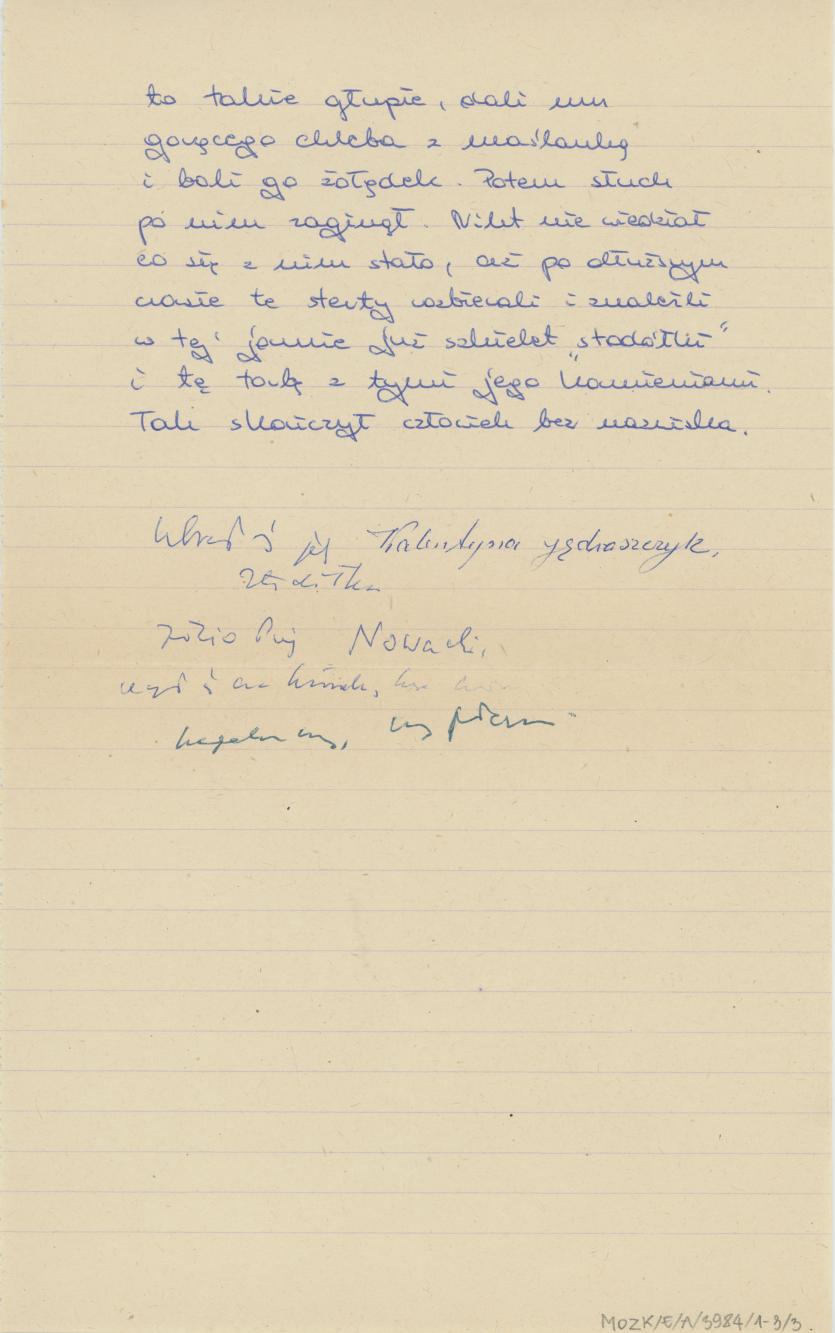 to takie głupie, dali mu
gorącego chleba z maślanką
i boli go żołądek. Potem słuch
po nim zaginął. Nikt nie wiedział
co się z nim stało, aż po dłuższym
czasie te sterty rozbierali i znaleźli
w tej jamie już szkielet „stodółki"
i tę torbę z tymi jego kamieniami.
Tak skończył człowiek bez nazwiska.
jej Walentyna Jędraszczyk,
Nowacki,
MOZK/E/A/3984/1-3/3.